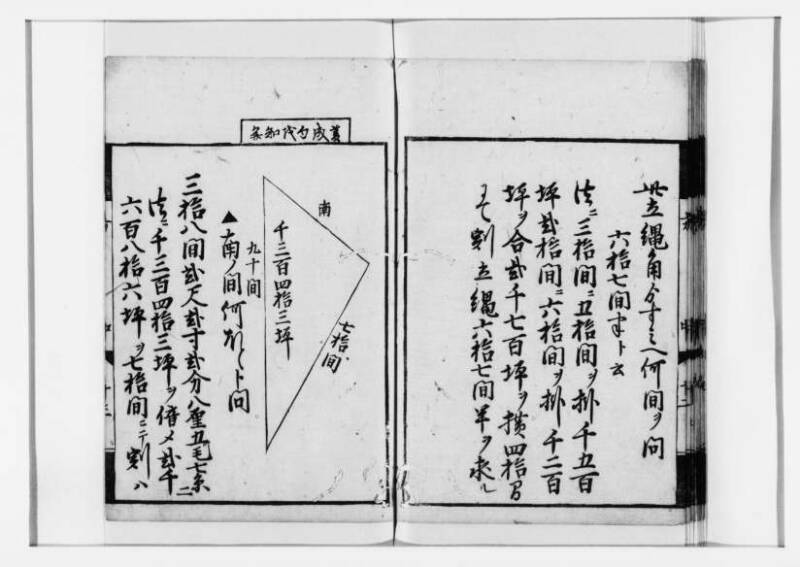 此立縄角ゟすミへ何間ヲ問
六拾七間半ト云
法ニ三拾間ニ五拾間ヲ掛千五百
坪弐拾間ニ六拾間ヲ掛千二百
坪ヲ合弐千七百坪ヲ横四拾間
ニて割立縄六拾七間半ヲ求ル
南
千三百四拾三坪
九十間
七拾間
▲南ノ間何ほとト問
三拾八間弐尺弐寸弐分八厘五毛七糸二
法ニ千三百四拾三坪ヲ倍メ弐千
六百八拾六坪ヲ七拾間ニテ割ハ